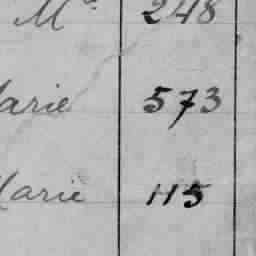 Mᵃ 248
Marie 573
Marie 115